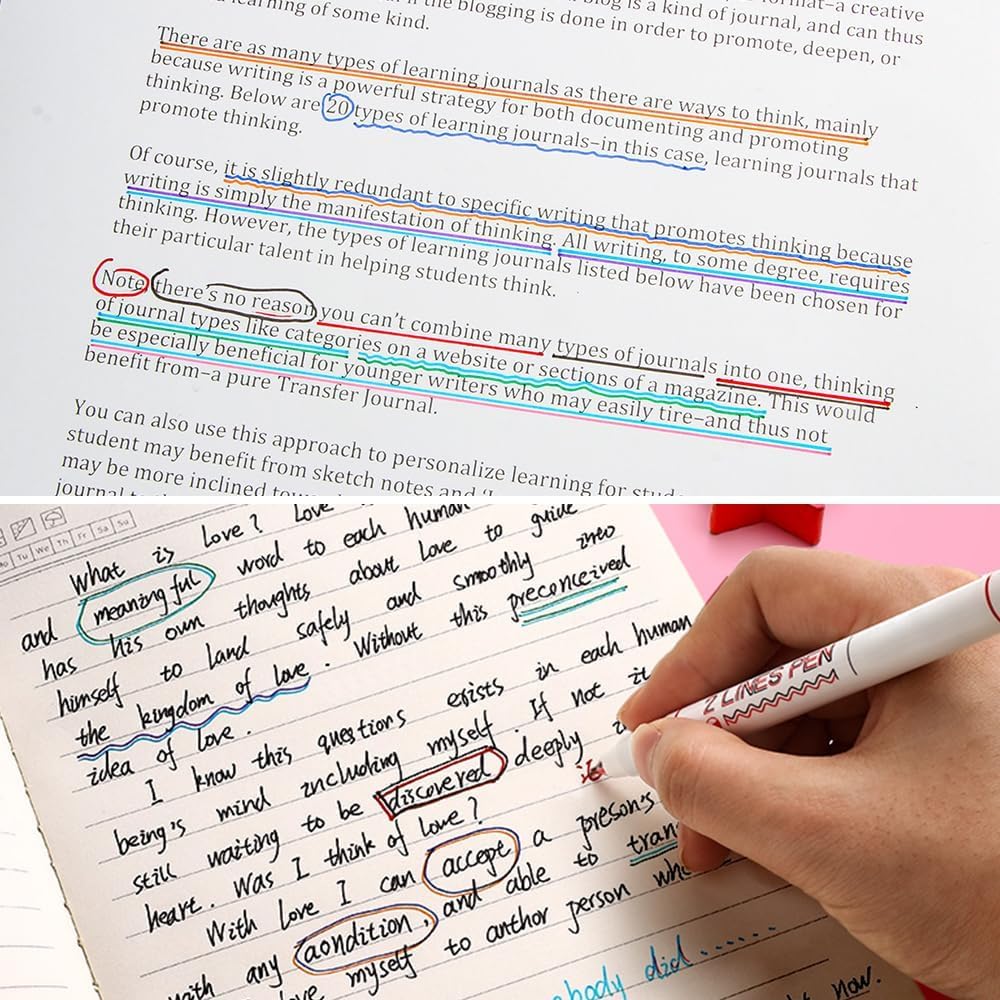 the blogging is done in order to promote, deepen, or
blog is a kind of journal, and can thus
learning of some kind.
There are as many types of learning journals as there are ways to think, mainly
because writing is a powerful strategy for both documenting and promoting
thinking. Below are 20 types of learning journals–in this case, learning journals that
promote thinking.
Of course, it is slightly redundant to specific writing that promotes thinking because
writing is simply the manifestation of thinking. All writing, to some degree, requires
thinking. However, the types of learning journals listed below have been chosen for
their particular talent in helping students think.
Note there's no reason you can't combine many types of journals into one, thinking
of journal types like categories on a website or sections of a magazine. This would
be especially beneficial for younger writers who may easily tire–and thus not
benefit from–a pure Transfer Journal.
You can also use this approach to personalize learning for
student may benefit from sketch notes and
may be more inclined
journal
Tu We Th Fr Sa Su
What is Love? Love
and meaningful word to each human
has his own thoughts about Love to guide
himself to land safely and smoothly into
the kingdom of love. Without this preconceived
idea of love.
I know this questions esists in each human
being's mind including myself. If not it
still waiting to be discovered deeply
heart. Was I think of love?
With Love I can accept a preson's
with any aondition, and able to tran
love myself to anthor person who
body did......
now.
2 LINES PEN